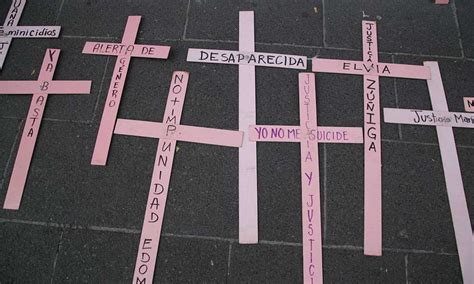 feminicidios
YA BASTA
ALERTA DE
GENERO
NO + IMPUNIDAD EDOM
DESAPARECIDA
YO NO ME SUICIDE
JUSTICIA Y JUSTI
ELVIA
JUSTICIA ZÚÑIGA
Justicia Mari